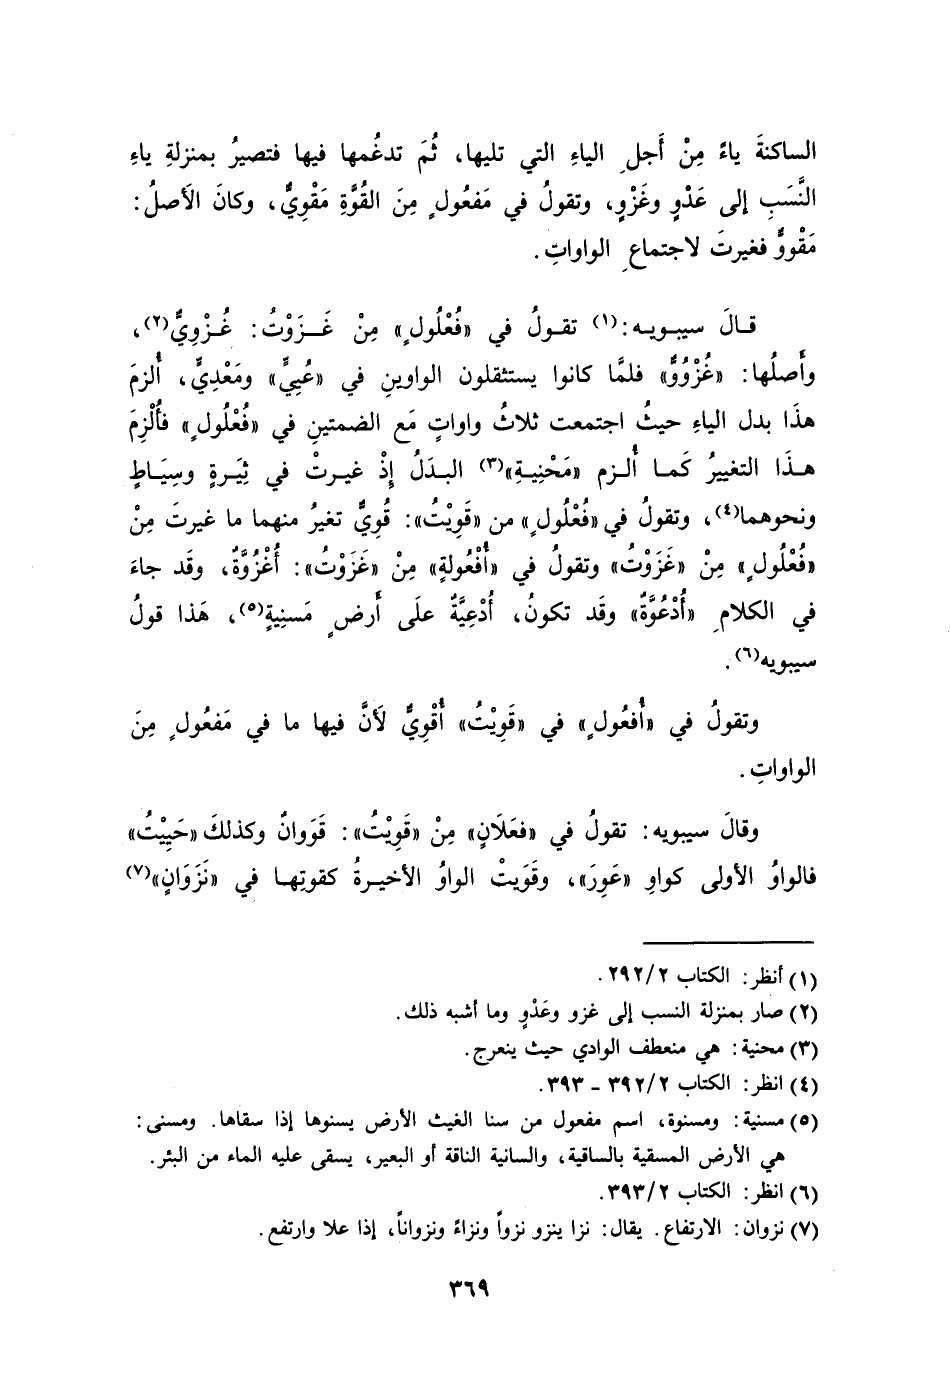 الساكنةَ ياءً مِنْ أَجلِ الياءِ التي تليها، ثُمَ تدغُمها فيها فتصيرُ بمنزلةِ ياءِ
النَّسَبِ إلى عَدْوٍ وغَزْوٍ، وتقولُ في مَفعُولٍ مِنَ القُوَّةِ مَقْوِيٌّ، وكانَ الأَصلُ:
مَقْووٌّ فغيرتَ لاجتماعِ الواواتِ.
قالَ سيبويه:(١) تقولُ في «فُعْلُولٍ» مِنْ غَزَوْتُ: غُزْوِيٌّ(٢)،
وأَصلُها: «غُزْوُوٌّ» فلمَّا كانوا يستثقلون الواوينِ في «عُتِيٍّ» ومَعْدِيٍّ، أُلزمَ
هذَا بدل الياءِ حيثُ اجتمعت ثلاثُ واواتٍ مَع الضمتينِ في «فُعْلُولٍ» فأُلْزِمَ
هذَا التغييرُ كَما أُلزم «مَحْنِيةِ»(٣) البدَلُ إذْ غيرتْ في ثِيَرةٍ وسِيَاطٍ
ونحوهما(٤)، وتقولُ في «فُعْلُولٍ» من «قَوِيْتُ»: قُوِيٌّ تغيرُ منهما ما غيرتَ مِنْ
«فُعْلُولٍ» مِنْ «غَزَوْتُ» وتقولُ في «أُفْعُولةٍ» مِنْ «غَزَوْتُ»: أُغْزُوَّةٌ، وقَد جاءَ
في الكلامِ «أُدْعُوَّةٌ» وقَد تكونُ، أُدْعِيَّةٌ علَى أَرضٍ مَسنِيةٍ(٥)، هَذا قولُ
سيبويه(٦).
وتقولُ في «أُفعُولٍ» في «قَوِيْتُ» أُقْوِيٌّ لَأنَّ فيها ما في مَفعُولٍ مِنَ
الواواتِ.
وقالَ سيبويه: تقولُ في «فعَلَانٍ» مِنْ «قَوِيْتُ»: قَوَوانٌ وكذلكَ «حَيِيْتُ»
فالواوُ الأولى كواوِ «عَوِرَ»، وقَوَيتْ الواوُ الأخيرةُ كقوتِها في «نَزَوَانٍ»(٧)
(١) أنظر: الكتاب ٢٩٢/٢.
(٢) صار بمنزلة النسب إلى غزو وعَدْوٍ وما أشبه ذلك.
(٣) محنية: هي منعطف الوادي حيث ينعرج.
(٤) انظر: الكتاب ٣٩٢/٢ - ٣٩٣.
(٥) مسنية: ومسنوة، اسم مفعول من سنا الغيث الأرض يسنوها إذا سقاها. ومسنى:
هي الأرض المسقية بالساقية، والسانية الناقة أو البعير، يسقى عليه الماء من البئر.
(٦) انظر: الكتاب ٣٩٣/٢.
(٧) نزوان: الارتفاع. يقال: نزا ينزو نزواً ونزاءً ونزواناً، إذا علا وارتفع.
٣٦٩